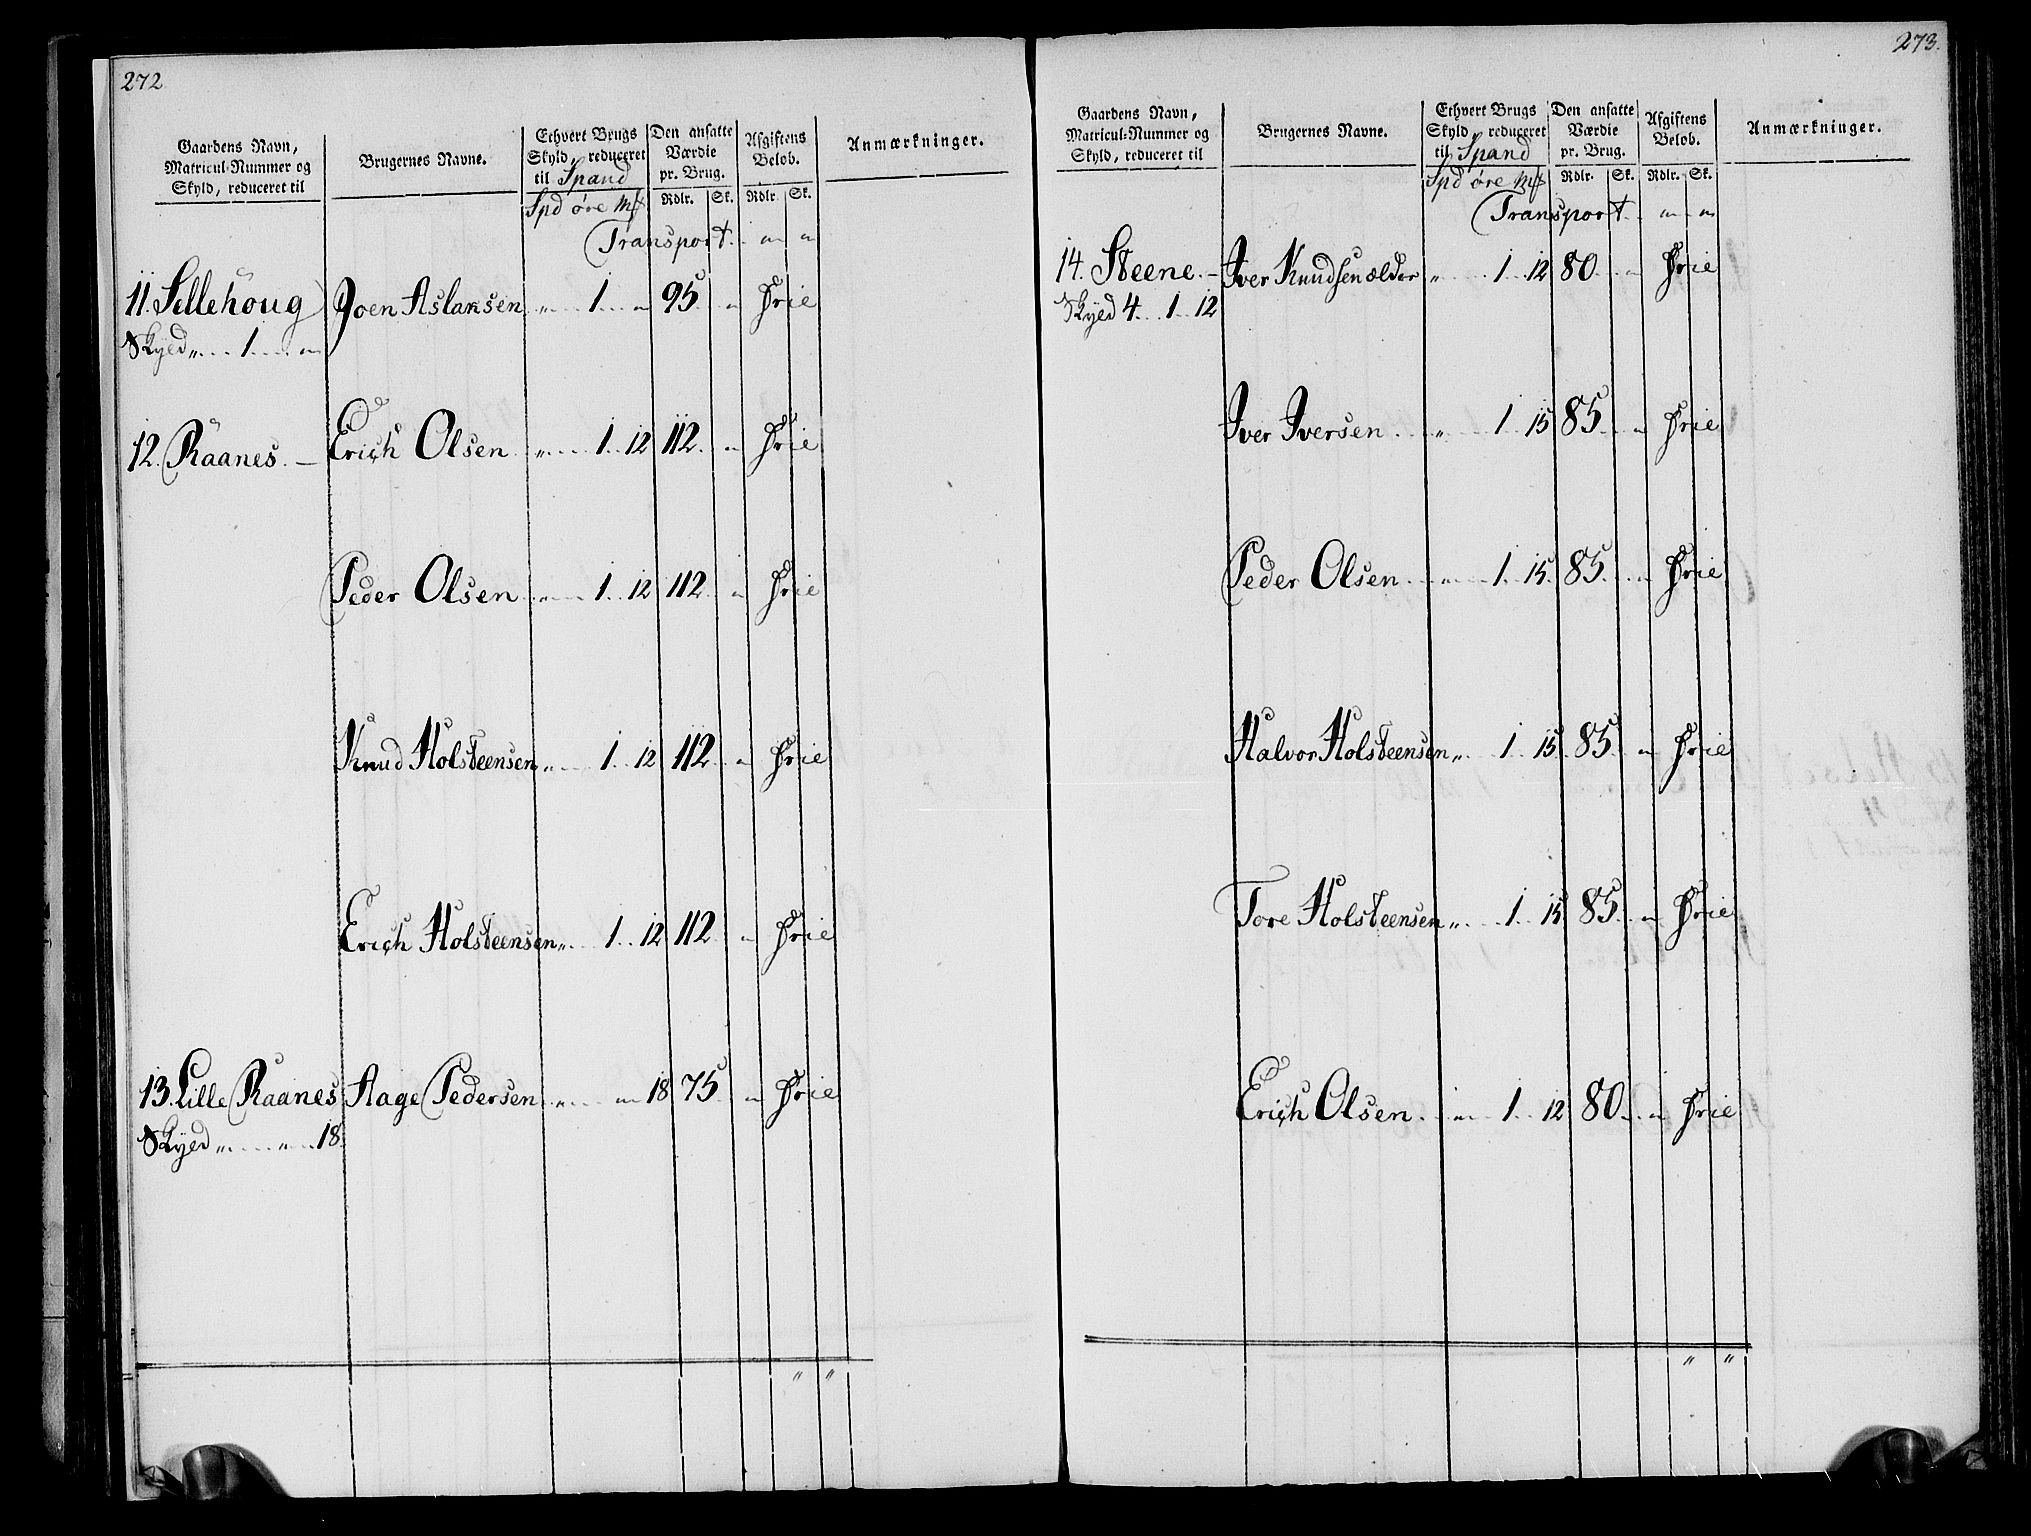 272
Gaardens Navn, Matricul-Nummer og Skyld, reduceret til
Brugernes Navne.
Ethvert Brugs Skyld, reduceret til Spand
Den ansatte Værdie pr. Brug.
Afgiftens Beløb.
Anmærkninger.
Spd øre Mk Rdlr. Sk. Rdlr. Sk.
Transport. „ „
11. Sellehoug Joen Aslaksen „ 1 „ 95 „ Frie
Skyld „ 1 „
12. Raanes. Erich Olsen „ 1 12 112 „ Frie
Peder Olsen „ 1 12 112 „ Frie
Knud Holsteensen „ 1 12 112 „ Frie
Erich Holsteensen „ 1 12 112 „ Frie
13. Lille Raanes Aage Pedersen „ „ 18 75 „ Frie
Skyld „ „ 18
„ „
273.
Gaardens Navn, Matricul-Nummer og Skyld, reduceret til
Brugernes Navne.
Ethvert Brugs Skyld, reduceret til Spand
Den ansatte Værdie pr. Brug.
Afgiftens Beløb.
Anmærkninger.
Spd øre Mk Rdlr. Sk. Rdlr. Sk.
Transport. „ „
14. Steene. Iver Knudsen ælder „ 1 12 80 „ Frie
Skyld 4 1 12
Iver Iversen „ 1 15 85 „ Frie
Peder Olsen „ 1 15 85 „ Frie
Halvor Holsteensen „ 1 15 85 „ Frie
Tore Holsteensen „ 1 15 85 „ Frie
Erich Olsen „ 1 12 80 „ Frie
„ „